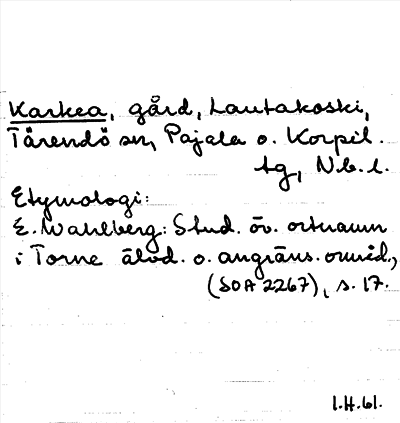 Karkea, gård, Lautakoski,
Tärendö sn, Pajala o. Korpil.
tg, N.b.l.
Etymologi:
E. Wahlberg: Stud. öv. ortnamn
i Torne älvd. o. angräns. områd.,
(SOA 2267), s. 17.
I.H.61.